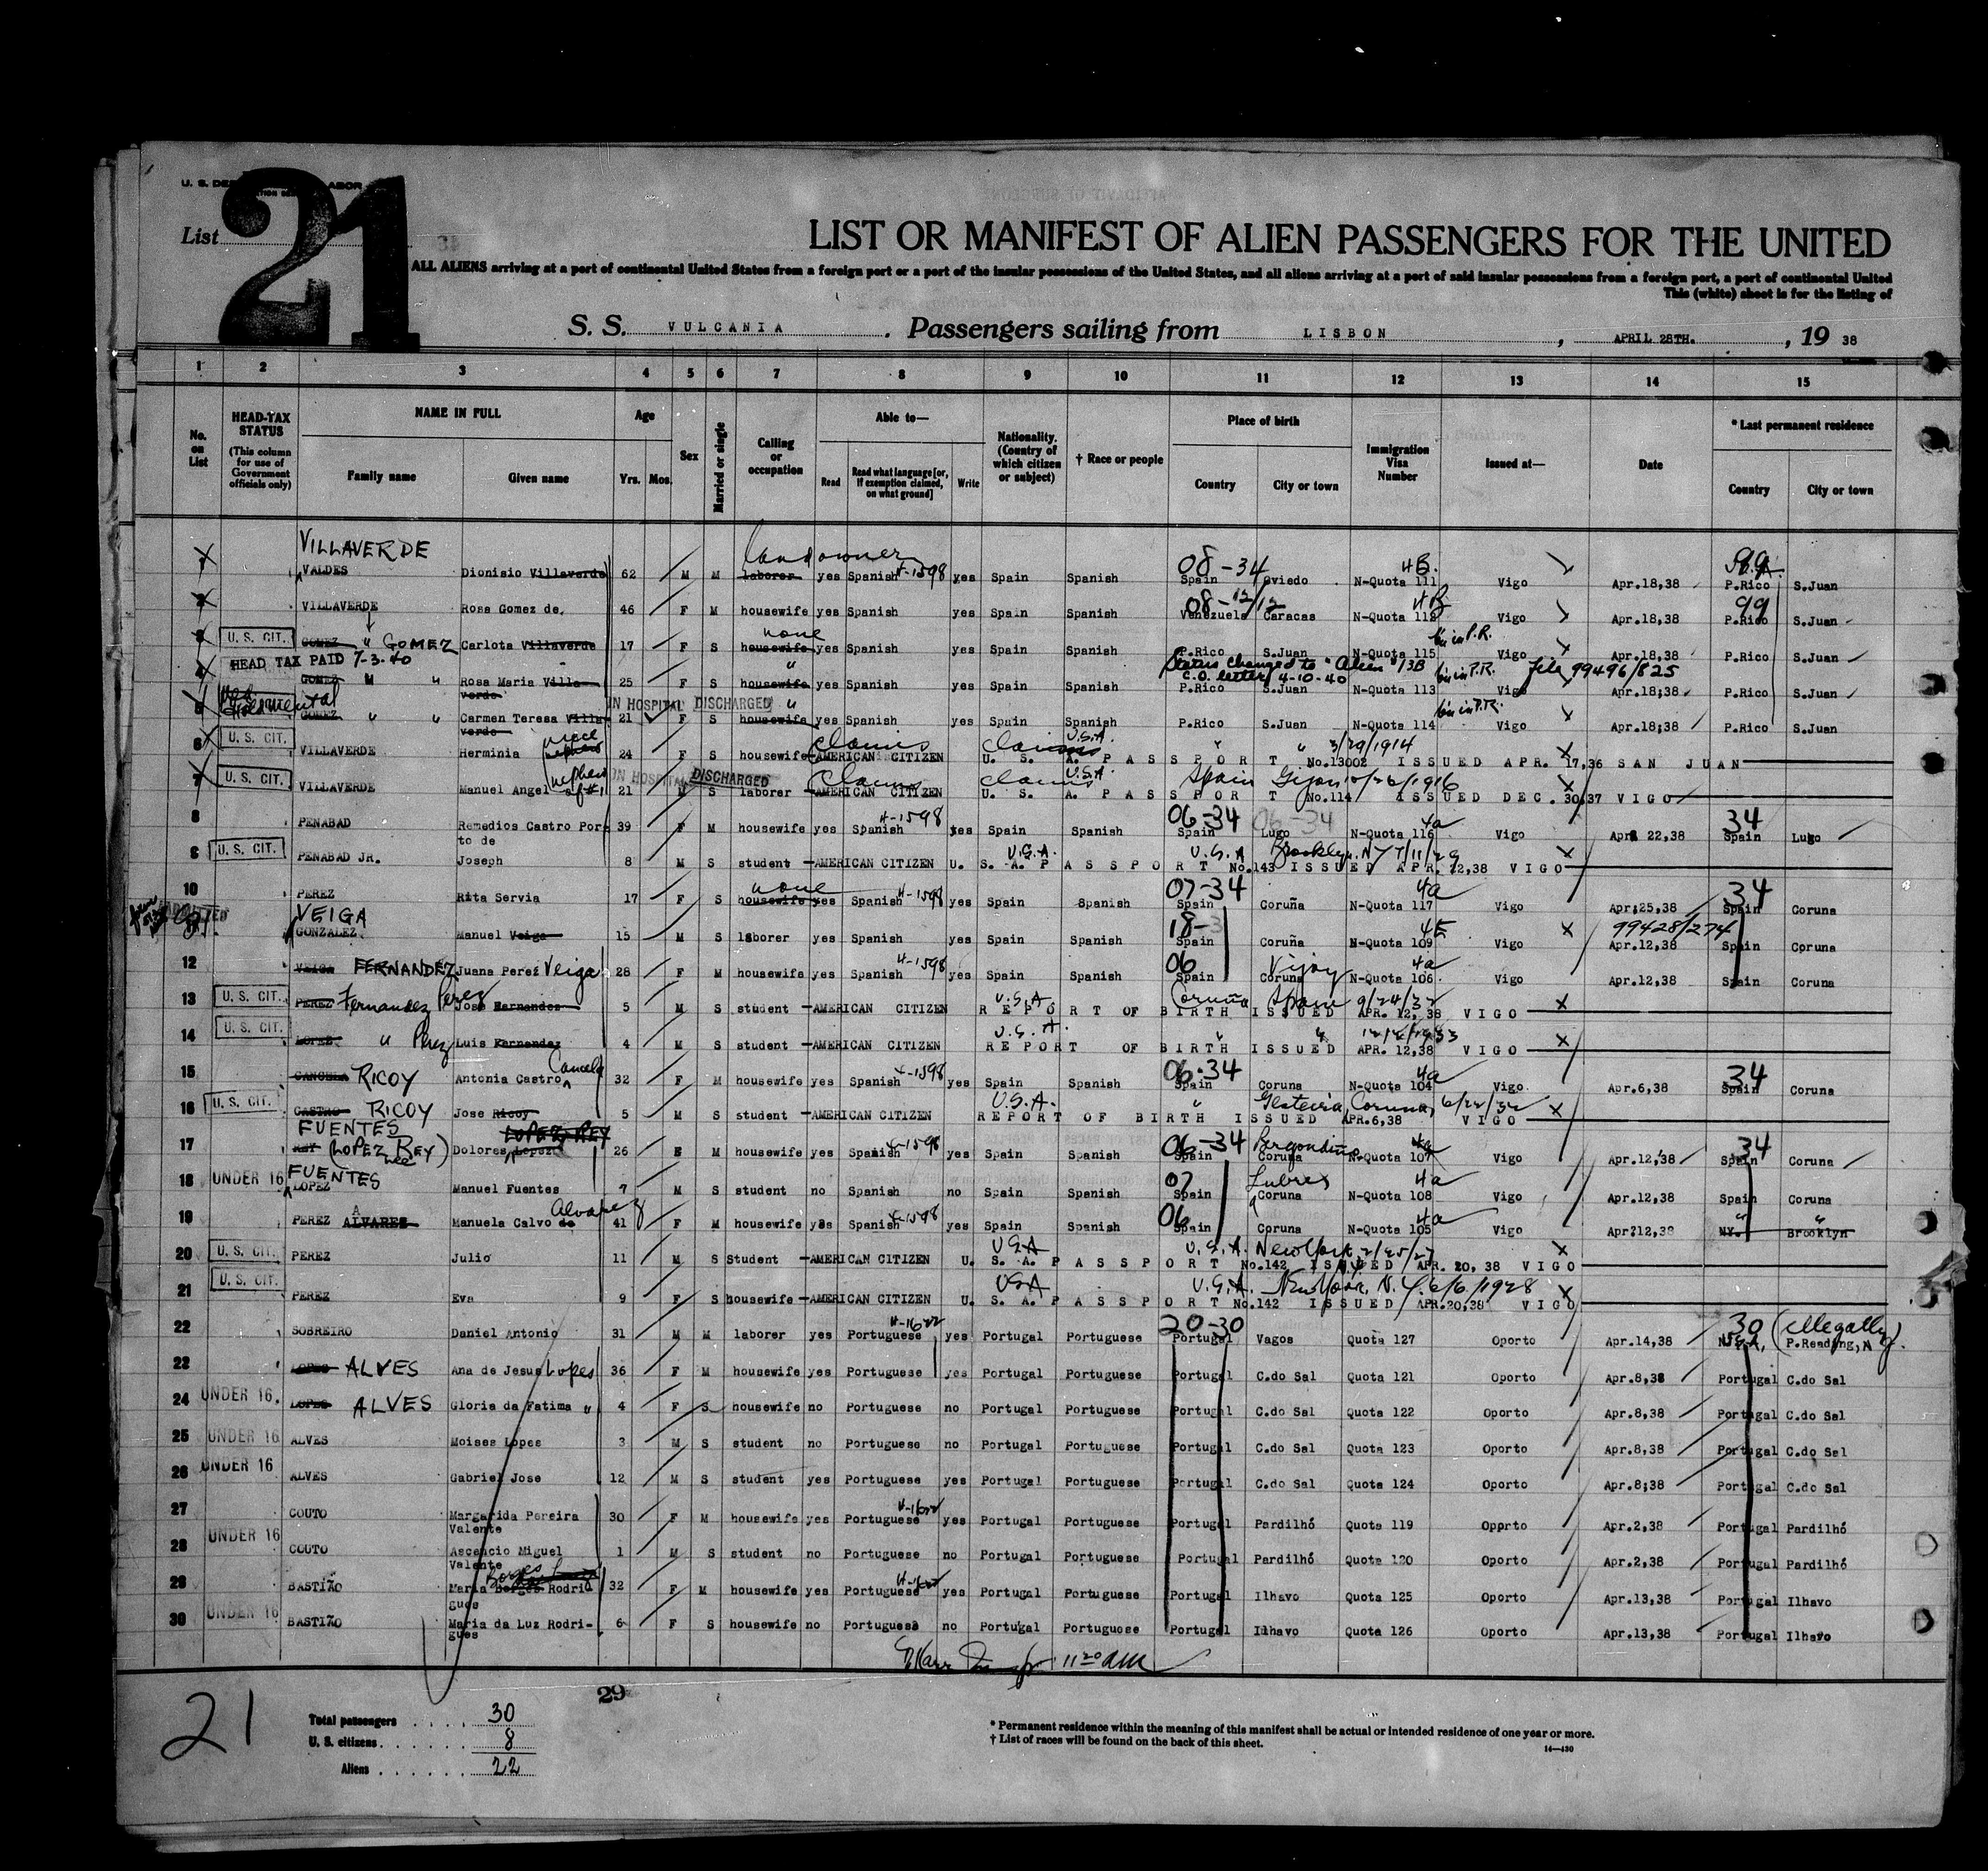 U. S. DEP LABOR
List 21
LIST OR MANIFEST OF ALIEN PASSENGERS FOR THE UNITED
ALL ALIENS arriving at a port of continental United States from a foreign port or a port of the insular possessions of the United States, and all aliens arriving at a port of said insular possessions from a foreign port, a port of continental United
This (white) sheet is for the listing of
S. S. VULCANIA. Passengers sailing from LISBON, APRIL 28TH., 19 38
1 2 3 4 5 6 7 8 9 10 11 12 13 14 15
No. on List
HEAD-TAX STATUS (This column for use of Government officials only)
NAME IN FULL Family name Given name
Age Yrs. Mos.
Sex
Married or single
Calling or occupation
Able to— Read Read what language [or, if exemption claimed, on what ground] Write
Nationality. (Country of which citizen or subject)
† Race or people
Place of birth Country City or town
Immigration Visa Number
Issued at—
Date
* Last permanent residence Country City or town
VILLAVERDE landowner 08-34 4B. 99
1 VALDES Dionisio Villaverde 62 M M laborer yes Spanish 4-1598 yes Spain Spanish Spain Oviedo N-Quota 111 Vigo Apr.18,38 P.Rico S.Juan
08-12/12 4B 99
2 VILLAVERDE Rosa Gomez de 46 F M housewife yes Spanish yes Spain Spanish Venezuela Caracas N-Quota 112 Vigo Apr.18,38 P.Rico S.Juan
none
3 U. S. CIT. GOMEZ " GOMEZ Carlota Villaverde 17 F S housewife yes Spanish yes Spain Spanish P.Rico S.Juan N-Quota 115 Vigo Apr.18,38 P.Rico S.Juan
HEAD TAX PAID 7-3-40 " Status changed to "Alien" 13B File 99496/825
C.O. letter 4-10-40
4 GOMEZ " " Rosa Maria Villaverde 25 F S housewife yes Spanish yes Spain Spanish P.Rico S.Juan N-Quota 113 Vigo Apr.18,38 P.Rico S.Juan
IN HOSPITAL DISCHARGED "
5 GOMEZ " " Carmen Teresa Villaverde 21 F S housewife yes Spanish yes Spain Spanish P.Rico S.Juan N-Quota 114 Vigo Apr.18,38 P.Rico S.Juan
niece claims claims U.S.A. " " 3/29/1914
6 U. S. CIT. VILLAVERDE Herminia 24 F S housewife AMERICAN CITIZEN U. S. A. PASSPORT No.13002 ISSUED APR. 17,36 SAN JUAN
nephew IN HOSPITAL DISCHARGED claims claims U.S.A. Spain Gijon 10/26/1916
7 U. S. CIT. VILLAVERDE Manuel Angel of #1 21 M S laborer AMERICAN CITIZEN U. S. A. PASSPORT No.114 ISSUED DEC. 30,37 VIGO
4-1598 06-34 06-34 4a 34
8 PENABAD Remedios Castro Porto de 39 F M housewife yes Spanish yes Spain Spanish Spain Lugo N-Quota 116 Vigo Apr. 22,38 Spain Lugo
U.S.A. U.S.A. Brooklyn. NY 7/11/29
U. S. CIT. PENABAD JR. Joseph 8 M S student AMERICAN CITIZEN U. S. A. PASSPORT No.143 ISSUED APR. 22,38 VIGO
none 07-34 4a 34
10 PEREZ Rita Servia 17 F S housewife yes Spanish 4-1598 yes Spain Spanish Spain Coruña N-Quota 117 Vigo Apr.25,38 Spain Coruna
ADMITTED VEIGA 18-3 4E 99428/274
GONZALEZ Manuel Veiga 15 M S laborer yes Spanish yes Spain Spanish Spain Coruña N-Quota 109 Vigo Apr.12,38 Spain Coruna
12 VEIGA FERNANDEZ Juana Perez Veiga 28 F M housewife yes Spanish 4-1598 yes Spain Spanish 06 Spain Coruna N-Quota 106 4a Vigo Apr.12,38 Spain Coruna
U.S.A. Coruña Spain 9/24/32
13 U. S. CIT. PEREZ Fernandez Perez Jose Hernandez 5 M S student AMERICAN CITIZEN REPORT OF BIRTH ISSUED APR. 12,38 VIGO
U.S.A. " "
14 U. S. CIT. LOPEZ " Perez Luis Hernandez 4 M S student AMERICAN CITIZEN REPORT OF BIRTH ISSUED APR. 12,38 VIGO
15 CANCELA RICOY Antonia Castro Cancela 32 F M housewife yes Spanish 4-1598 yes Spain Spanish 06-34 Spain Coruna N-Quota 104 4a Vigo Apr.6,38 34 Spain Coruna
U.S.A. " Coruna, 6/22/32
16 U. S. CIT. CASTRO RICOY Jose Ricoy 5 M S student AMERICAN CITIZEN REPORT OF BIRTH ISSUED APR.6,38 VIGO
FUENTES LOPEZ REY
17 REY (LOPEZ REY) nee Dolores Lopez 26 F M housewife yes Spanish 4-1598 yes Spain Spanish 06-34 Spain Coruna N-Quota 107 4a Vigo Apr.12,38 34 Spain Coruna
FUENTES
18 UNDER 16 LOPEZ Manuel Fuentes 7 M S student no Spanish no Spain Spanish 07 Spain Coruna N-Quota 108 4a Vigo Apr.12,38 Spain Coruna
19 PEREZ A ALVARES Manuela Calvo de Alvarez 41 F M housewife yes Spanish 4-1598 yes Spain Spanish 06 Spain Coruna N-Quota 105 4a Vigo Apr.12,38 NY. Brooklyn
USA U.S.A. New York 2/25/27
20 U. S. CIT. PEREZ Julio 11 M S Student AMERICAN CITIZEN U. S. A. PASSPORT No.142 ISSUED APR. 20,38 VIGO
USA U.S.A. New York, N.Y. 6/6/1928
21 U. S. CIT. PEREZ Eva 9 F S housewife AMERICAN CITIZEN U. S. A. PASSPORT No.142 ISSUED APR.20,38 VIGO
4-1622 20-30 30 (illegally)
22 SOBREIRO Daniel Antonio 31 M M laborer yes Portuguese yes Portugal Portuguese Portugal Vagos Quota 127 Oporto Apr.14,38 P.Reading, NJ.
22 LOPES ALVES Ana de Jesus Lopes 36 F M housewife yes Portuguese yes Portugal Portuguese Portugal C.do Sal Quota 121 Oporto Apr.8,38 Portugal C.do Sal
24 UNDER 16 LOPES ALVES Gloria da Fatima " 4 F S housewife no Portuguese no Portugal Portuguese Portugal C.do Sal Quota 122 Oporto Apr.8,38 Portugal C.do Sal
25 UNDER 16 ALVES Moises Lopes 3 M S student no Portuguese no Portugal Portuguese Portugal C.do Sal Quota 123 Oporto Apr.8,38 Portugal C.do Sal
26 UNDER 16 ALVES Gabriel Jose 12 M S student yes Portuguese yes Portugal Portuguese Portugal C.do Sal Quota 124 Oporto Apr.8,38 Portugal C.do Sal
27 COUTO Margarida Pereira Valente 30 F M housewife yes Portuguese 4-1622 yes Portugal Portuguese Portugal Pardilhó Quota 119 Oporto Apr.2,38 Portugal Pardilhó
28 UNDER 16 COUTO Ascencio Miguel Valente 1 M S student no Portuguese no Portugal Portuguese Portugal Pardilhó Quota 120 Oporto Apr.2,38 Portugal Pardilhó
29 BASTIÃO Maria Borges Rodrigues 32 F M housewife yes Portuguese yes Portugal Portuguese Portugal Ilhavo Quota 125 Oporto Apr.13,38 Portugal Ilhavo
30 UNDER 16 BASTIÃO Maria da Luz Rodrigues 6 F S housewife no Portuguese no Portugal Portuguese Portugal Ilhavo Quota 126 Oporto Apr.13,38 Portugal Ilhavo
11 20 AM
21
29
Total passengers . . . . 30
U. S. citizens . . . . . . 8
Aliens . . . . . . 22
* Permanent residence within the meaning of this manifest shall be actual or intended residence of one year or more.
† List of races will be found on the back of this sheet.
14—430